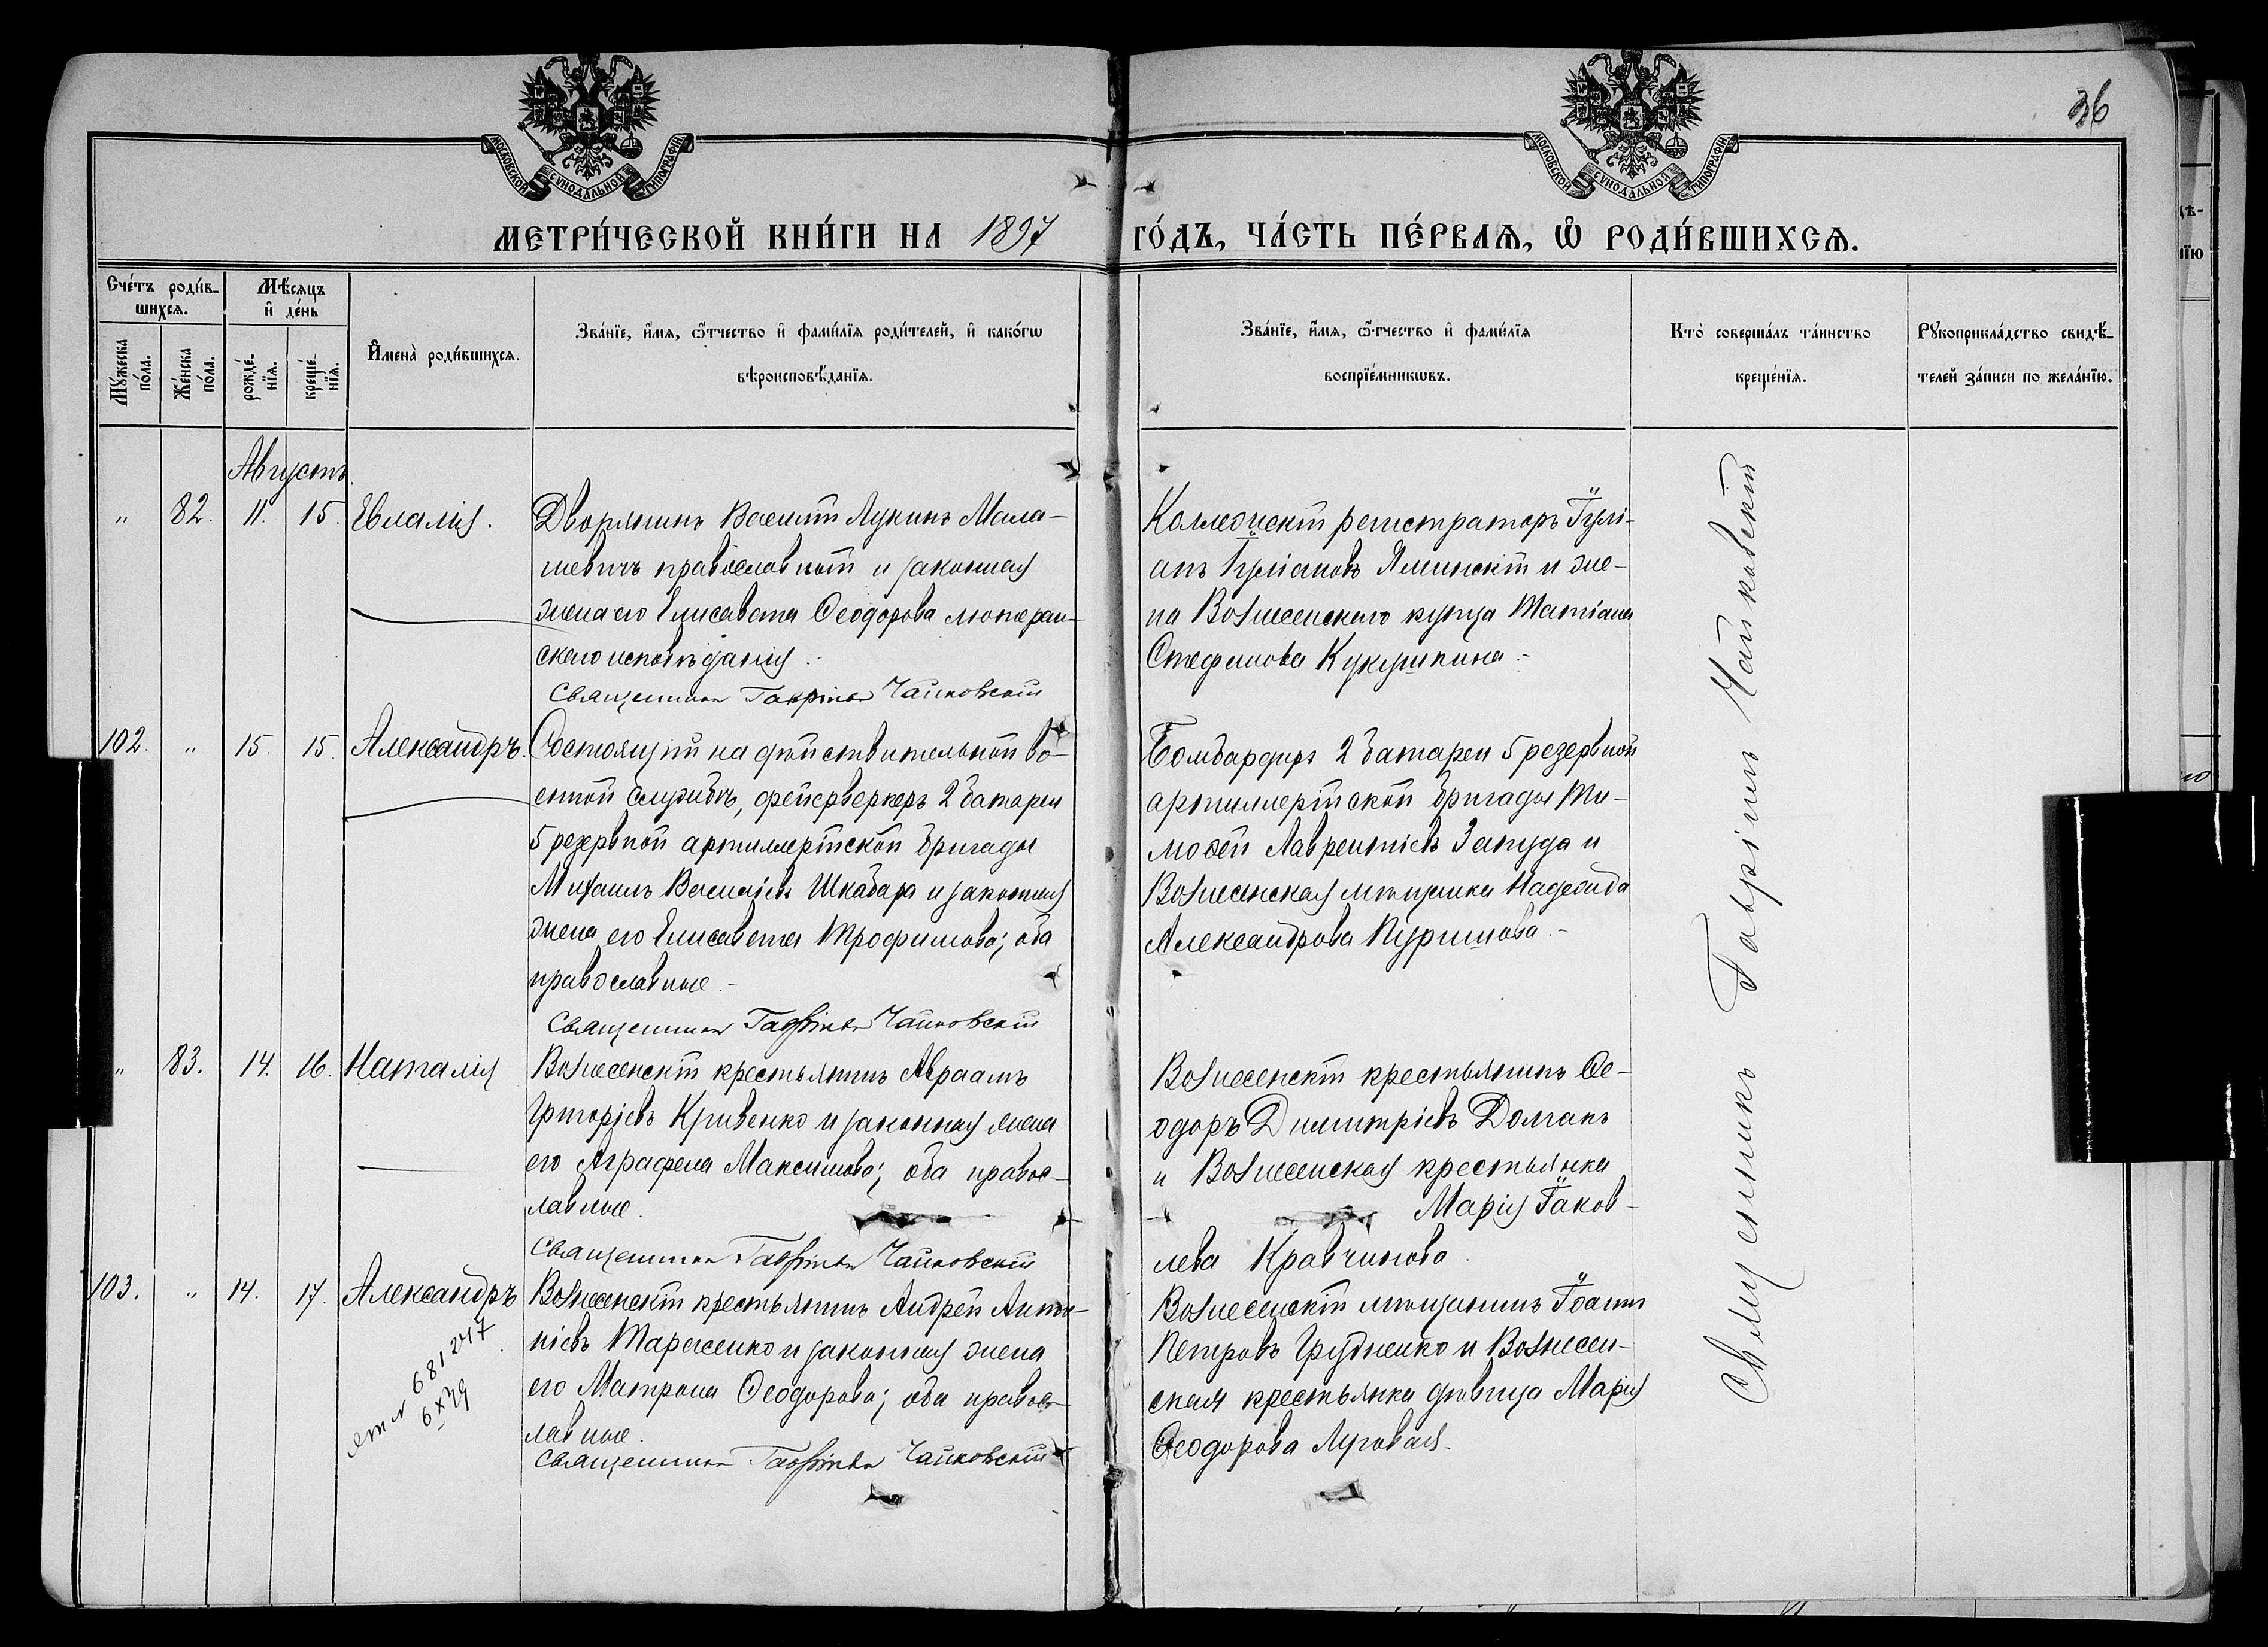 36
МОСКОВСКОЙ СѴНОДАЛЬНОЙ ТИПОГРАФІИ
МОСКОВСКОЙ СѴНОДАЛЬНОЙ ТИПОГРАФІИ
МЕТРИ́ЧЕСКОЙ КНИ́ГИ НА 1897 ГО́ДЪ, ЧА́СТЬ ПЕ́РВАѦ, Ѡ҆ РОДИ́ВШИХСѦ.
Сче́тъ роди́в-
шихсѧ.
Му́жеска по́ла.
Же́нска по́ла.
Мѣ́сяцъ
и҆ де́нь
рожде́-
нїѧ.
креще́-
нїѧ.
И҆мена̀ роди́вшихсѧ.
Зва́нїе, и҆́мѧ, ѻ҆́тчество и҆ фами́лїѧ роди́телей, и҆ како́гѡ
вѣроисповѣ́данїѧ.
Зва́нїе, и҆́мѧ, ѻ҆́тчество и҆ фами́лїѧ
воспрїе́мникѡвъ.
Кто̀ соверша́лъ та́инство
креще́нїѧ.
Рꙋкоприкла́дство свидѣ́-
телей за́писи по жела́нїю.
Августъ.
" 82. 11. 15. Евлалія.
Дворянинъ Василій Лукинъ Мала-
шевичъ православный и законная
жена его Елисавета Ѳеодорова лютеран-
скаго исповѣданія.
Священникъ Гавріилъ Чайковскій
Коллежскій регистраторъ Іулі-
анъ Іуліановъ Яминскій и же-
на Вознесенскаго купца Татіана
Стефанова Кукушкина.-
102. " 15. 15. Александръ.
Состоящій на дѣйствительной во-
енной службѣ, фейерверкеръ 2 батареи
5 резервной артиллерійской бригады
Михаилъ Василіевъ Шкабара и законная
жена его Елисавета Трофимова; оба
православные.-
Священникъ Гавріилъ Чайковскій
Бомбардиръ 2 батареи 5 резервной
артиллерійской бригады Ти-
моѳей Лаврентіевъ Запуда и
Вознесенская мѣщанка Надежда
Александрова Куришова.-
" 83. 14. 16. Наталія
Вознесенскій крестьянинъ Авраамъ
Григоріевъ Кривенко и законная жена
его Аграфена Максимова; оба правос-
лавные.
Священникъ Гавріилъ Чайковскій
Вознесенскій крестьянинъ Ѳе-
одоръ Димитріевъ Долганъ
и Вознесенская крестьянка
Марія Іаков-
лева Кравчинова.
103. " 14. 17. Александръ
681247
6 X 39
Вознесенскій крестьянинъ Андрей Анто-
ніевъ Тарасенко и законная жена
его Матрона Ѳеодорова; оба правос-
лавные.
Священникъ Гавріилъ Чайковскій
Вознесенскій мѣщанинъ Іоаннъ
Петровъ Грудненко и Вознесен-
ская крестьянка дѣвица Марія
Ѳеодорова Луговая.
Священникъ Гавріилъ Чайковскій